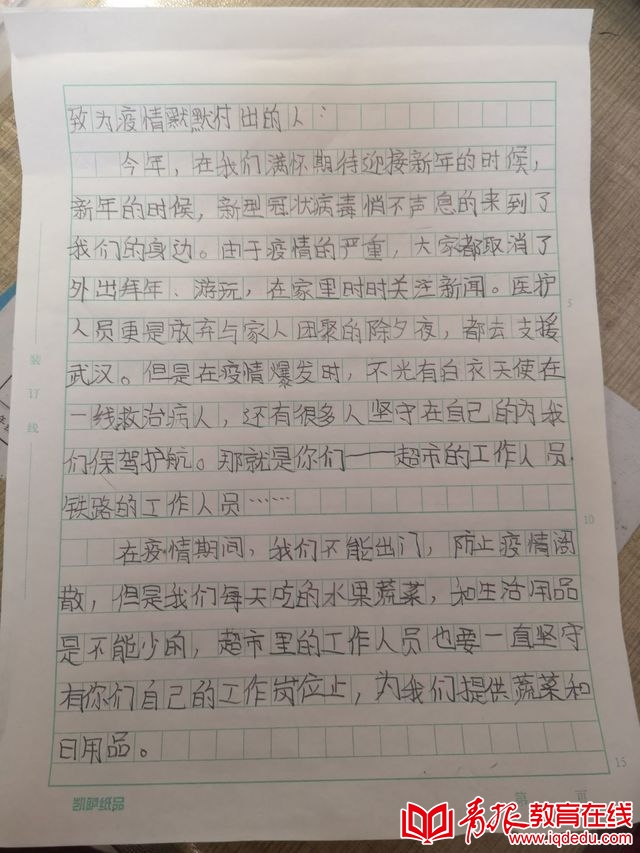 致为疫情默默付出的人：
今年，在我们满怀期待迎接新年的时候，
新年的时候，新型冠状病毒悄不声息的来到了
我们的身边。由于疫情的严重，大家都取消了
外出拜年、游玩，在家里时时关注新闻。医护
人员更是放弃与家人团聚的除夕夜，都去支援
武汉。但是在疫情爆发时，不光有白衣天使在
一线救治病人，还有很多人坚守在自己的为我
们保驾护航。那就是你们——超市的工作人员
铁路的工作人员……
在疫情期间，我们不能出门，防止疫情
散，但是我们每天吃的水果蔬菜，和生活用品
是不能少的，超市里的工作人员也要一直坚守
有你们自己的工作岗位止，为我们提供蔬菜和
日用品。
装
订
线
5
10
15
凯萨纸品
第 页
青报教育在线
www.iqdedu.com